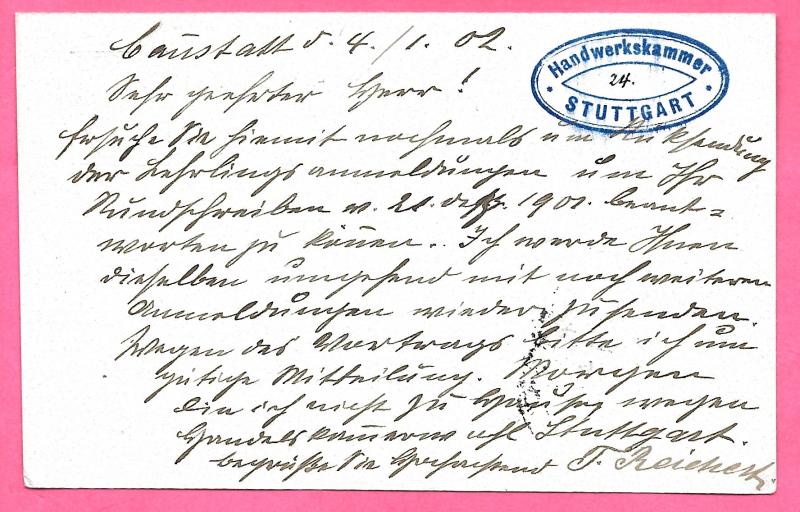 Cannstatt d. 4./1. 02.
Handwerkskammer
24.
STUTTGART
Sehr geehrter Herr!
Ersuche Sie hiemit nochmals um Rücksendung
der Lehrlingsanmeldungen um Ihr
Rundschreiben v. 21. Dez. 1901. beant=
worten zu können. Ich werde Ihnen
dieselben umgehend mit noch weiteren
Anmeldungen wieder zusenden.
Wegen des Vortrags bitte ich um
gütige Mitteilung. Morgen
bin ich nicht zu Hause wegen
Handelskammer Stuttgart.
begrüße Sie Hochachtend T. Reichert